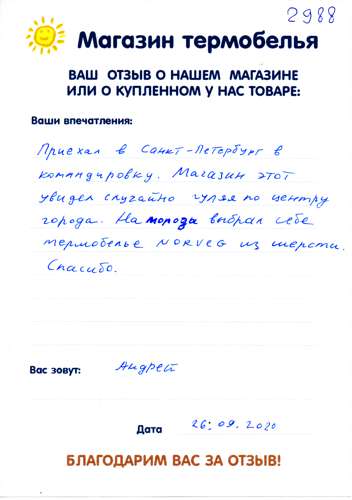 2988
Магазин термобелья
ВАШ ОТЗЫВ О НАШЕМ МАГАЗИНЕ
ИЛИ О КУПЛЕННОМ У НАС ТОВАРЕ:
Ваши впечатления:
Приехал в Санкт-Петербург в
командировку. Магазин этот
увидел случайно гуляя по центру
города. На морозы выбрал себе
термобелье NORVEG из шерсти.
Спасибо.
Вас зовут: Андрей
Дата 26.09.2020
БЛАГОДАРИМ ВАС ЗА ОТЗЫВ!